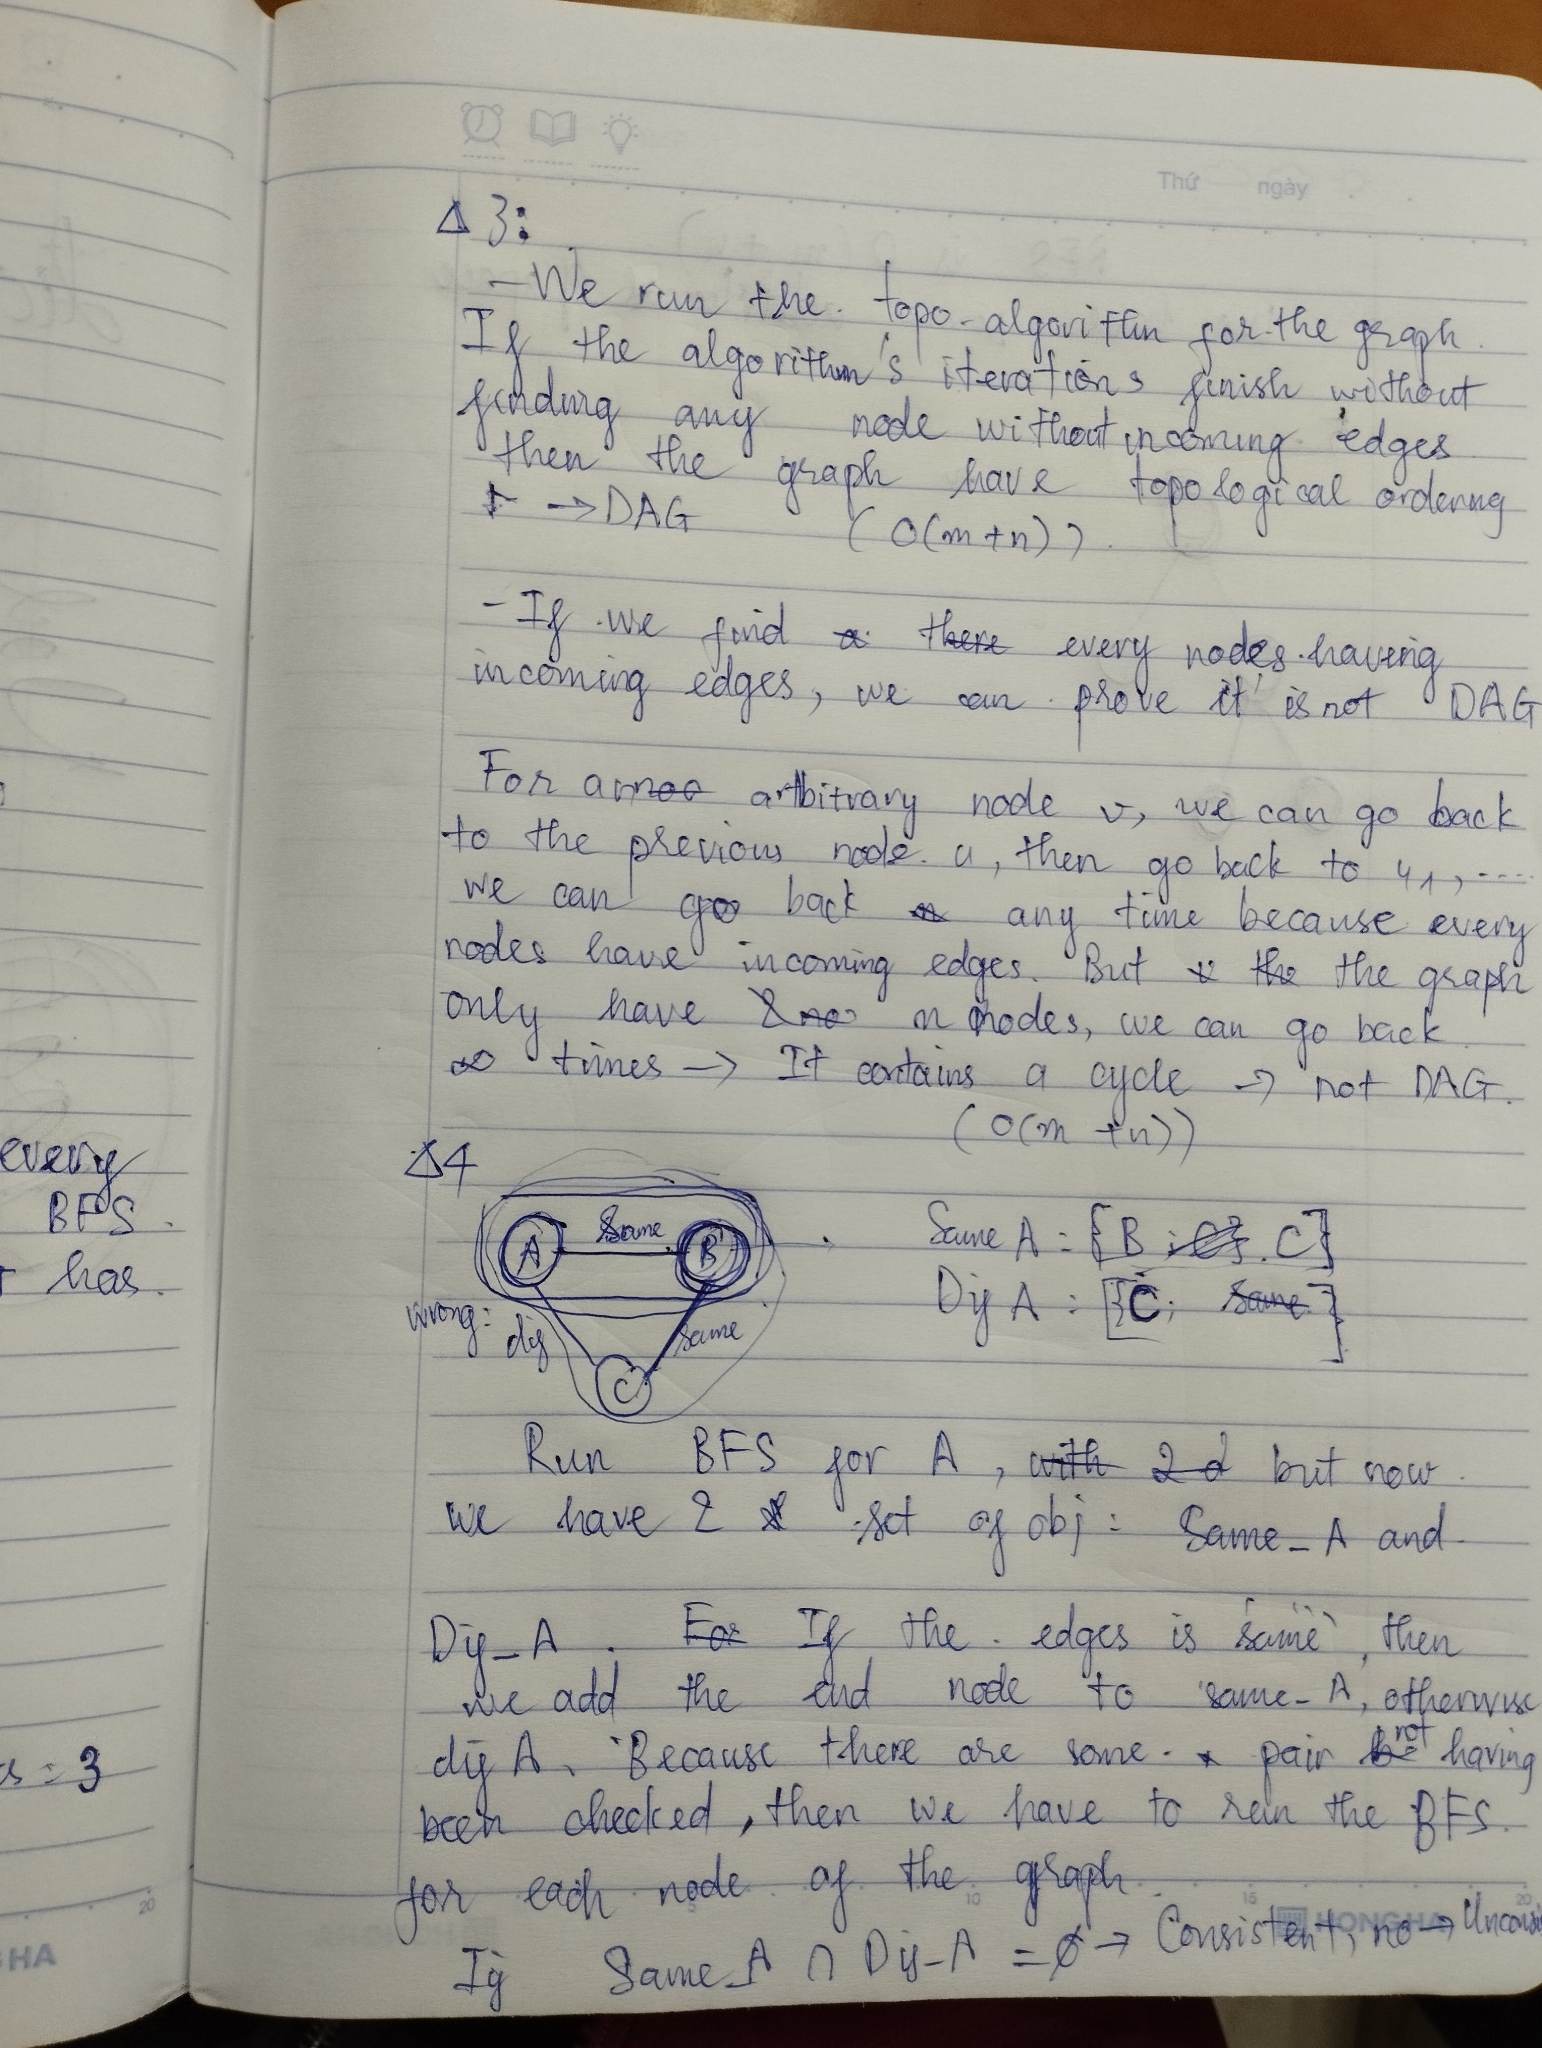 Thứ ngày
Δ 3:
- We run the topo-algorithm for the graph.
If the algorithm's iterations finish without
finding any node without incoming edges
then the graph have topological ordering
→ DAG (O(m+n)).
- If we find a there every nodes having
incoming edges, we can prove it is not DAG
For arbitrary node v, we can go back
to the previous node u, then go back to u1, ....
we can go back any time because every
nodes have incoming edges. But the the graph
only have n nodes, we can go back
∞ times → It contains a cycle → not DAG.
(O(m+n))
Δ4
A Same B
wrong: dif same
C
Same A = [B C]
Dif A : [{C; same]
Run BFS for A, with 2 d but now
we have 2 set of obj: Same_A and
Dif_A. For If the edges is "same", then
we add the end node to same_A, otherwise
dif A. Because there are some pair not having
been checked, then we have to run the BFS
for each node of the graph
If Same_A ∩ Dif_A = ∅ → Consistent, no →
every
BFS.
has.
= 3
20
HA
10
15
20
HONG HA